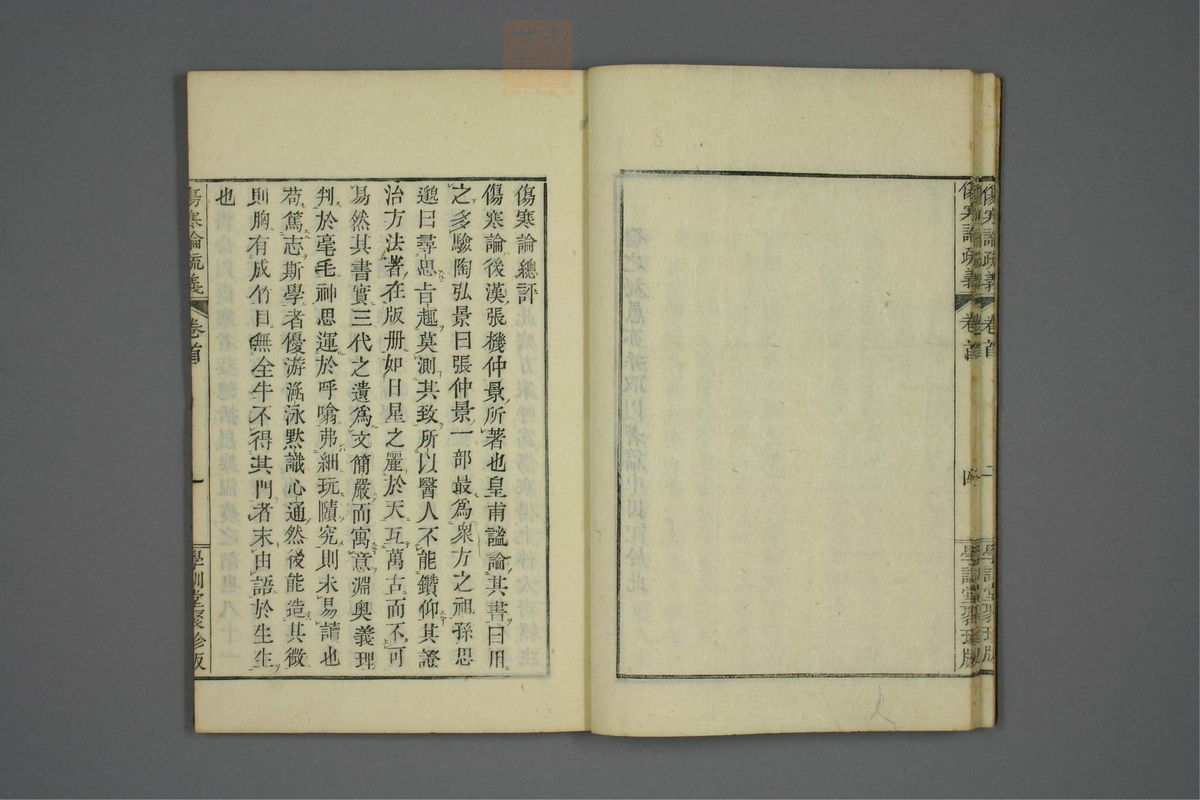 傷寒論疏義
卷首
二
學訓堂聚珍版
傷寒論疏義
卷首
四
學訓堂聚珍版
傷寒論總評
傷寒論後漢張機仲景所著也皇甫謐論其書曰用
之多驗陶弘景曰張仲景一部最爲衆方之祖孫思
邈曰尋思旨趣莫測其致所以醫人不能鑽仰其證
治方法著在版册如日星之麗於天亙萬古而不可
易然其書實三代之遺爲文簡嚴而寓意淵奧義理
判於毫毛神思運於呼噏弗細玩賾究則未易讀也
苟篤志斯學者優游涵泳默識心通然後能造其微
則胸有成竹目無全牛不得其門者末由語於生生
也
傷寒論疏義
卷首
一
學訓堂聚珍版